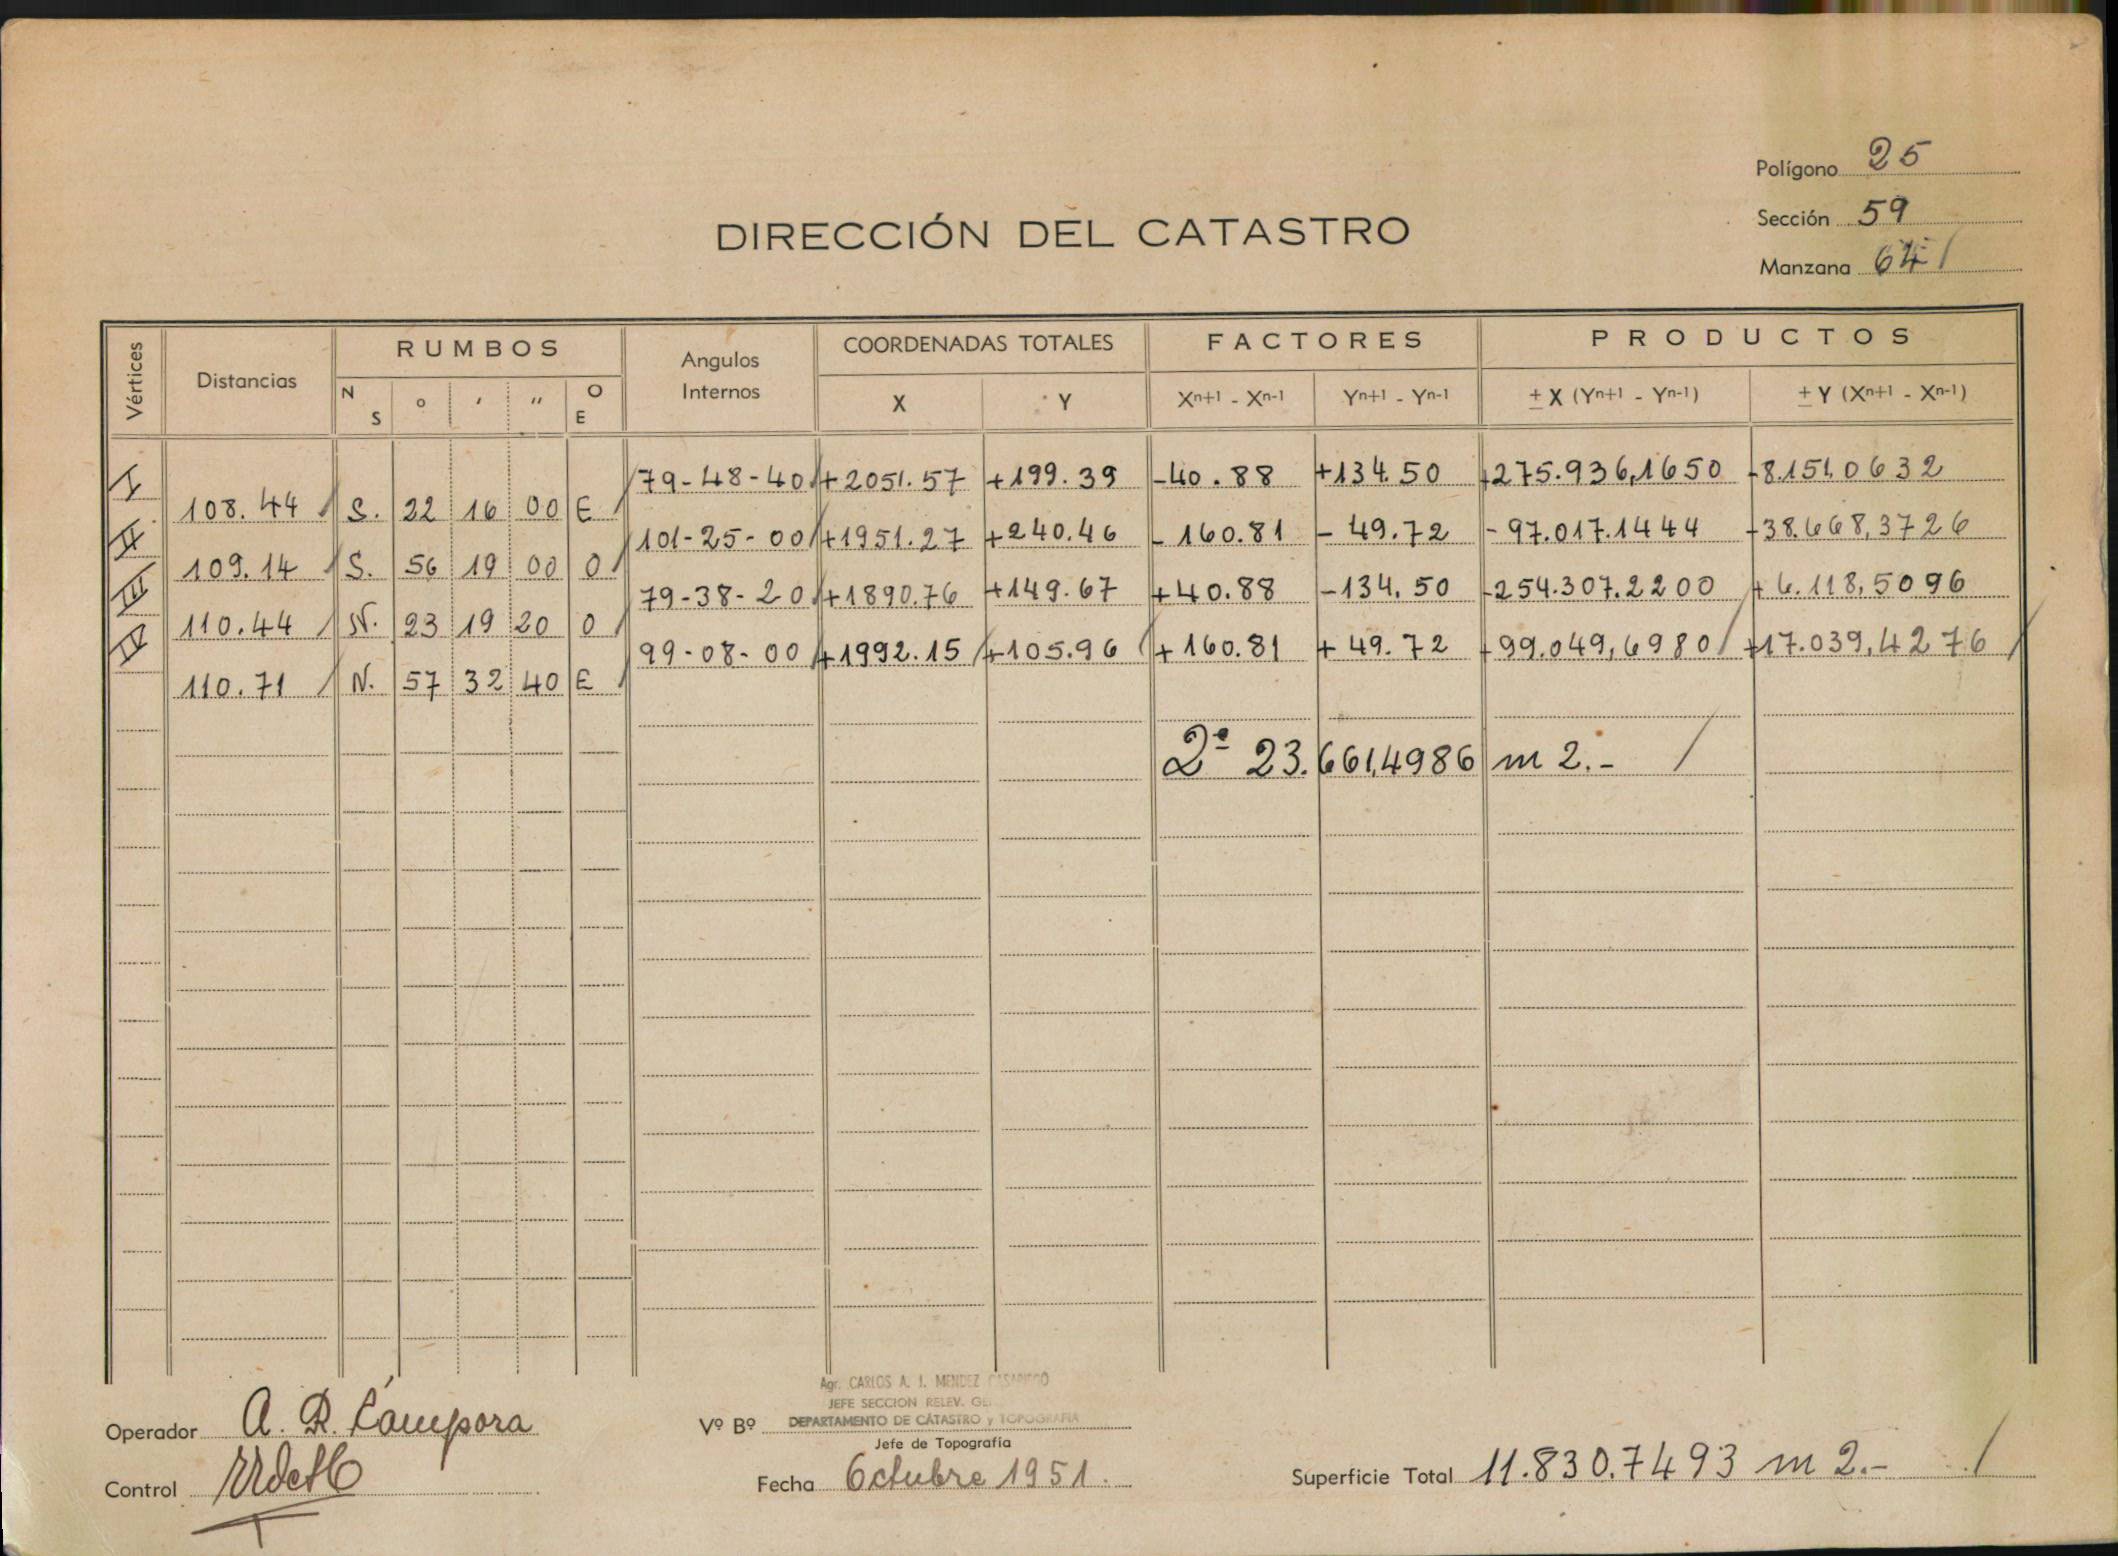 Polígono 25
Sección 59
Manzana 64
DIRECCIÓN DEL CATASTRO
Vértices Distancias RUMBOS Angulos Internos COORDENADAS TOTALES FACTORES PRODUCTOS
N S o ' '' O E X Y Xn+1 - Xn-1 Yn+1 - Yn-1 ± X (Yn+1 - Yn-1) ± Y (Xn+1 - Xn-1)
I 79-48-40 +2051.57 +199.39 -40.88 +134.50 +275.936,1650 -8.151,0632
108.44 S. 22 16 00 E
II 101-25-00 +1951.27 +240.46 -160.81 -49.72 -97.017.1444 -38.668,3726
109.14 S. 56 19 00 O
III 79-38-20 +1890.76 +149.67 +40.88 -134.50 -254.307.2200 +6.118,5096
110.44 N. 23 19 20 O
IV 99-08-00 +1992.15 +105.96 +160.81 +49.72 +99.049,6980 +17.039,4276
110.71 N. 57 32 40 E
23.661,4986 m2.-
Operador A. R. Cámpora
Control
Agr. CARLOS A. I. MENDEZ CASARIEGO
JEFE SECCION RELEV. GE
Vº Bº DEPARTAMENTO DE CATASTRO y TOPOGRAFIA
Jefe de Topografía
Fecha Octubre 1951.
Superficie Total 11.830.7493 m2.-